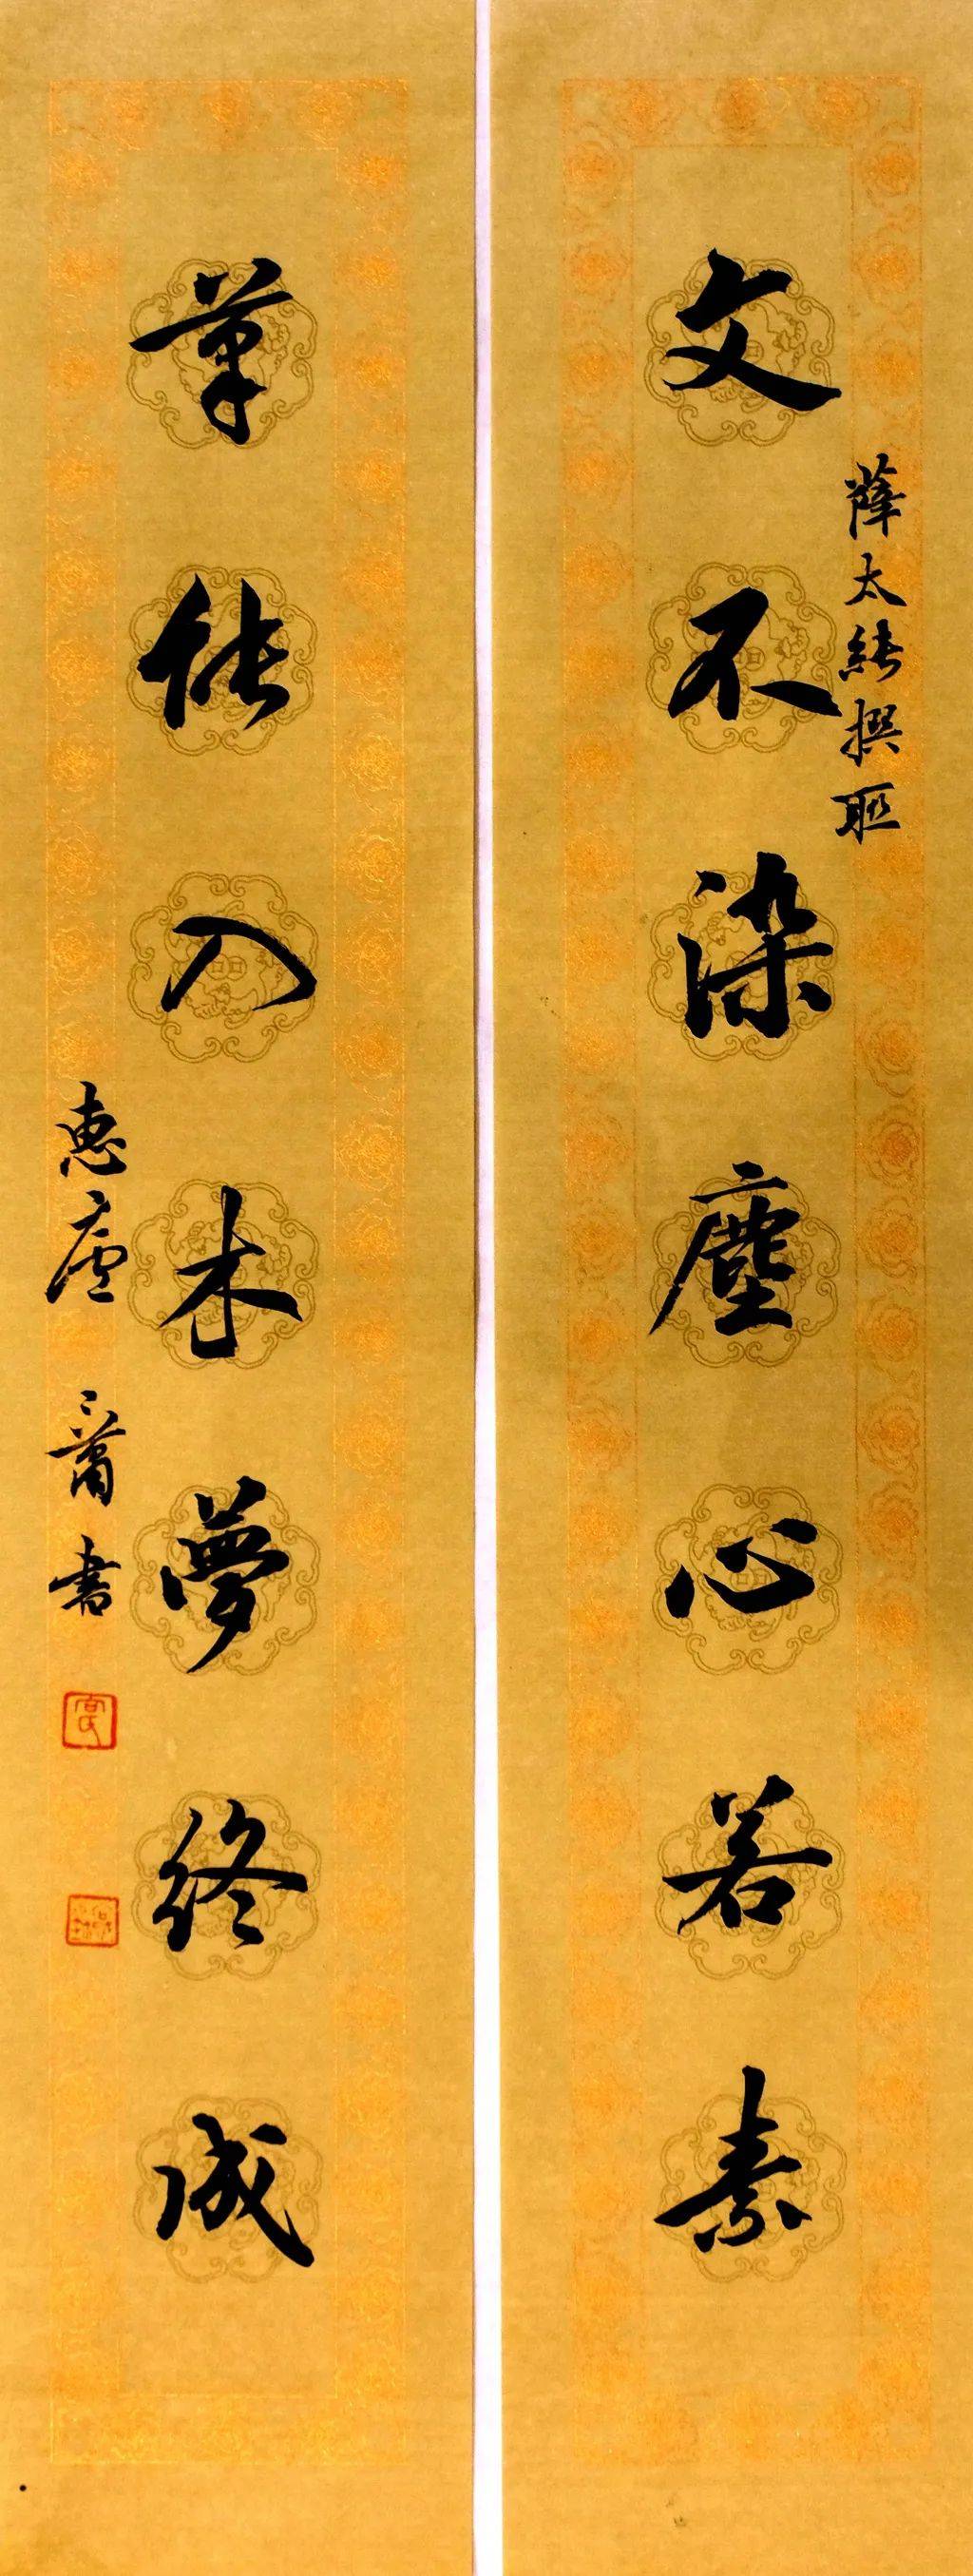 文不染塵心若素
薛太純撰聯
筆能入木夢終成
惠廬
書